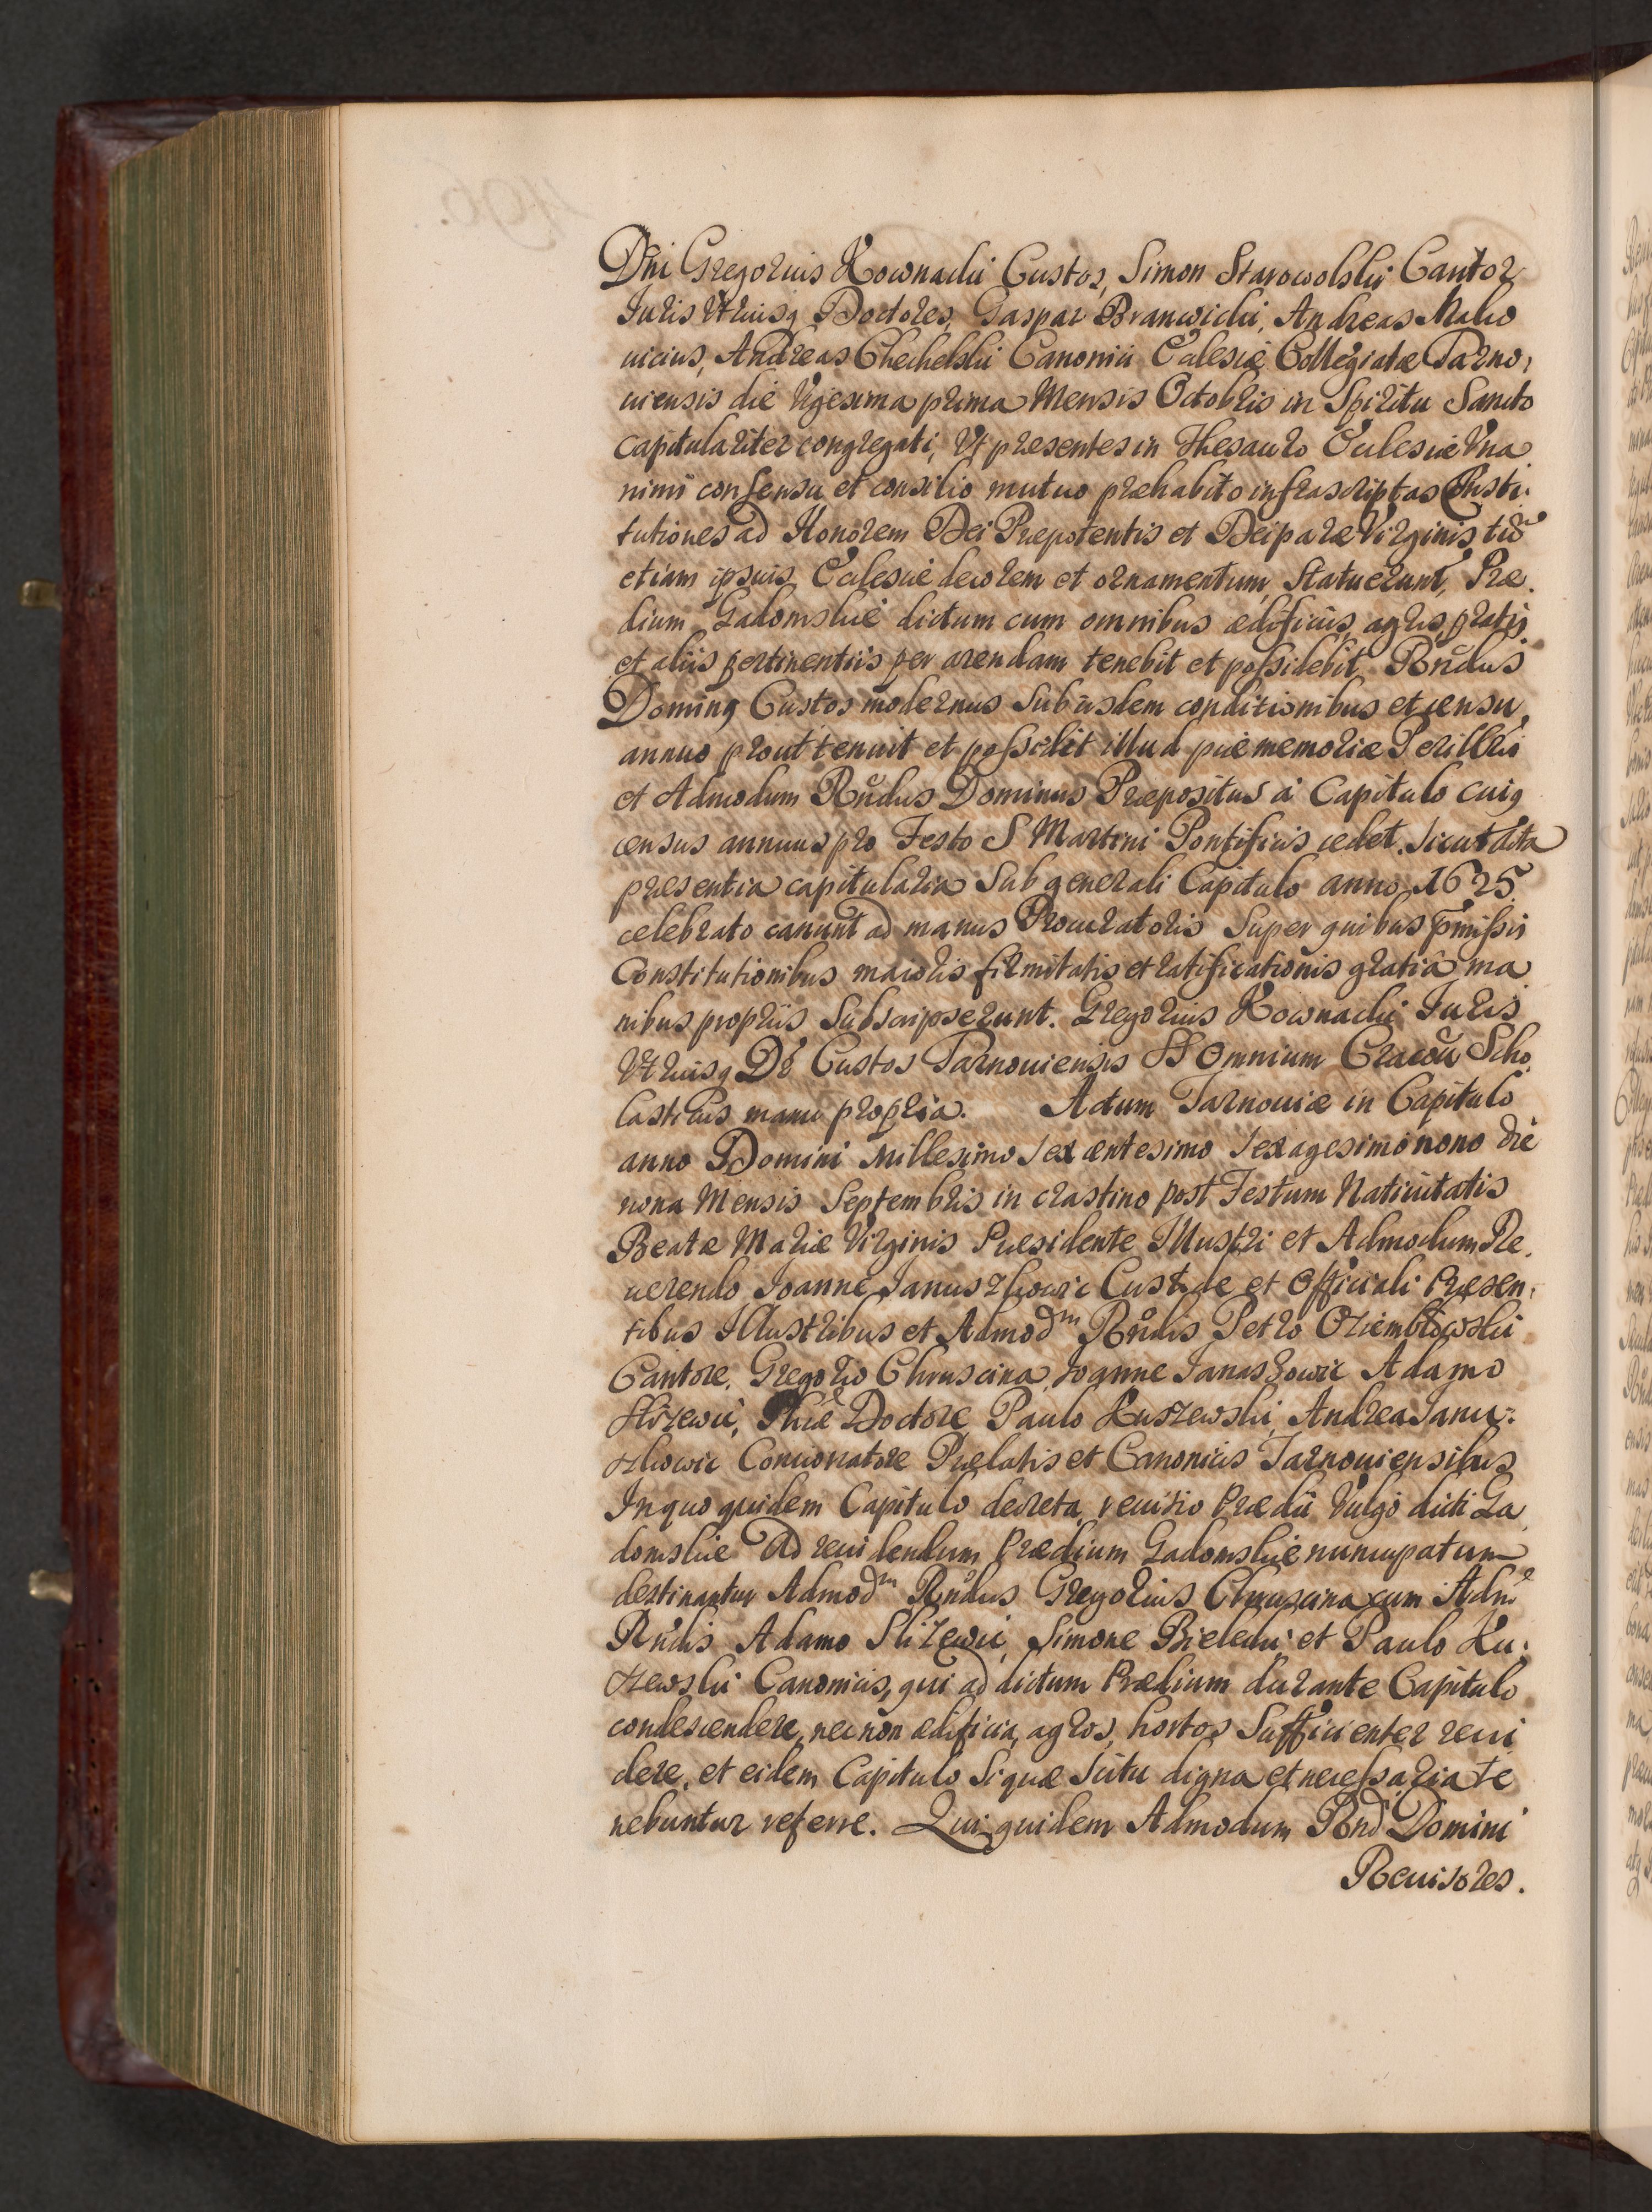 Dni Gregorius Kownacki Custos, Simon Starowolski Cantor
Juris Utriusq Doctores, Gaspar Branwicki, Andreas Malio
uicius, Andreas Chechelski Canonici Ecclesiæ Collegiatæ Tarno,
uiensis die Vigesima prima Mensis Octobris in Spiritu Sancto
capitulariter congregati, Ut præsentes in Thesauro Ecclesiæ Vna
nimi consensu et consilio mutuo præhabito infrascriptas Consti.
tutiones ad Honorem Dei Præpotentis et Deiparæ Virginis tũ
etiam ipsius Ecclesiæ decorem et ornamentum Statuerunt, Præ.
dium Gadomskie dictum cum omnibus ædificiis, agris, pratis
et aliis pertinentiis per arendam tenebit et possidebit Rndus
Dominq Custos modernus Sub iisdem conditionibus et censu,
annuo prout tenuit et possidit illud piæ memoriæ Perillris
et Admodum Rndus Dominus Præpositus à Capitulo cuiq
census annuus pro Festo S Martini Pontificis cedet. Sicut dicta
præsentia capitularia Sub generali Capitulo anno 1625.
celebrato canunt ad manus Procuratoris Super quibus pmissis
Constitutionibus maioris firmitatis et ratificationis gratiâ ma
nibus propriis Subscripserunt. Gregorius Kownacki Juris
Utriusq Dr Custos Tarnouiensis SS Omnium Cracou Scho
lasticus manu propria. Actum Tarnouiæ in Capitulo
anno Domini Millesimo Sexcentesimo Sexagesimo nono die
nona Mensis Septembris in crastino post Festum Natiuitatis
Beatæ Mariæ Virginis Præsidente Illustri et Admodum Re.
uerendo Joanne Januszkowic Custode et Officiali Præsen,
tibus Illustribus et Admodm Rndis Petro Oziembłowski
Cantore, Gregorio Chruscina, Joanne Janaszowic Adamo
Slizewic, Phiæ Doctore Paulo Kuszewski, Andrea Janu:
szkowic Concionatore Prælatis et Canonicis Tarnouiensibus
In quo quidem Capitulo decreta reuisio Prædii Vulgo dicti Ga
domskie Ad reuidendum Prædium Gadomskie nuncupatum
destinantur Admodm Rndus Gregorius Chruscina cum Adm
Rndis Adamo Slizewic, Simone Bielecki et Paulo Ku:
szewski Canonicis, qui ad dictum Prædium durante Capitulo
condescendere, necnon ædificia, agros, hortos Sufficienter reui
dere, et eidem Capitulo Siquæ Scitu digna et necessaria te
nebuntur referre. Qui quidem Admodum Rnd Domini
Reuisores.